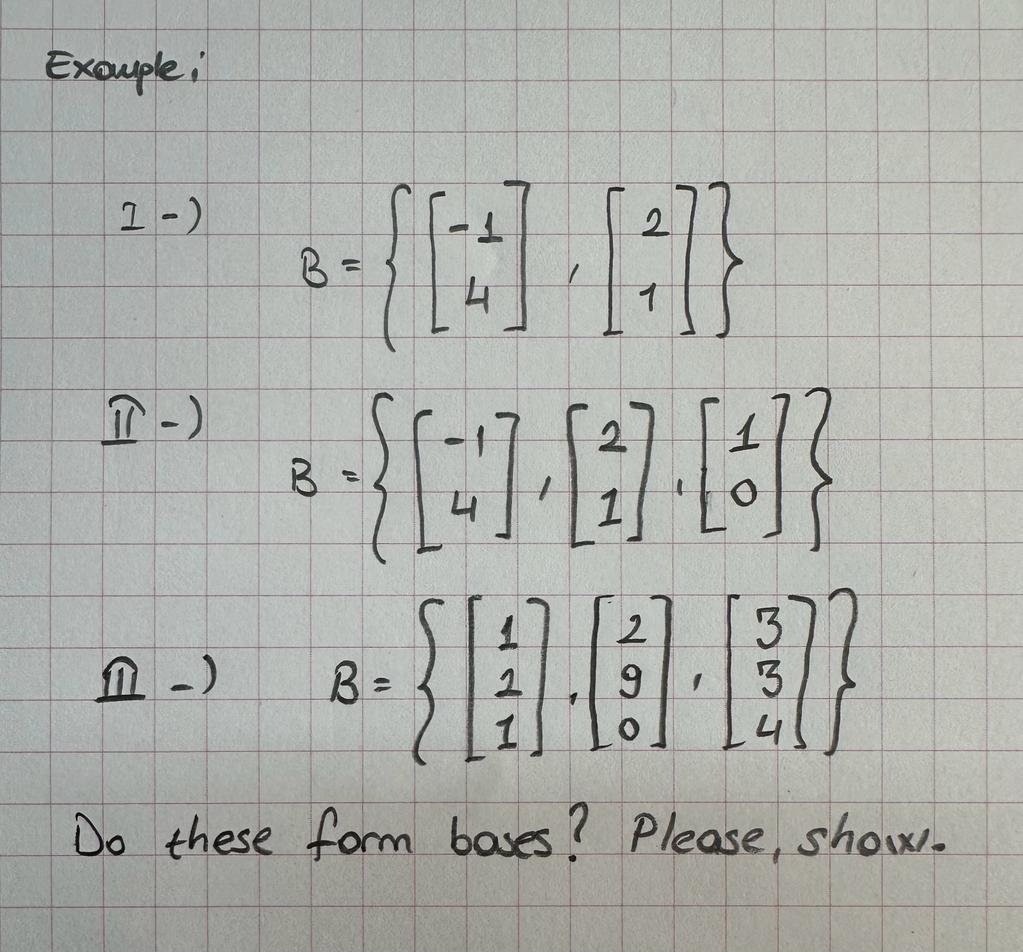 Example;
I-) B = { [-1 4] , [2 1] }
II-) B = { [-1 4] , [2 1] , [1 0] }
III-) B = { [1 2 1] , [2 9 0] , [3 3 4] }
Do these form bases? Please, show.